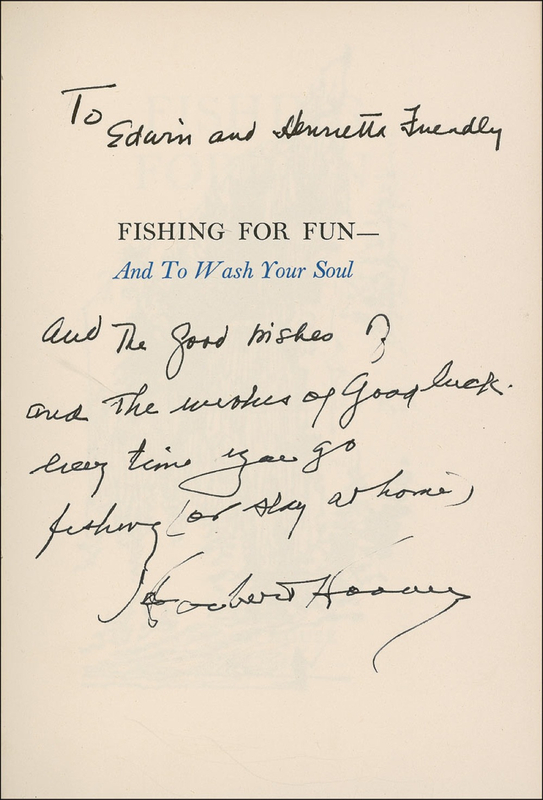 To
Edwin and Henrietta Friendly
FISHING FOR FUN—
And To Wash Your Soul
And The Good Wishes of
and The wishes of Good luck.
every time you go
fishing (or stay at home)
Herbert Hoover